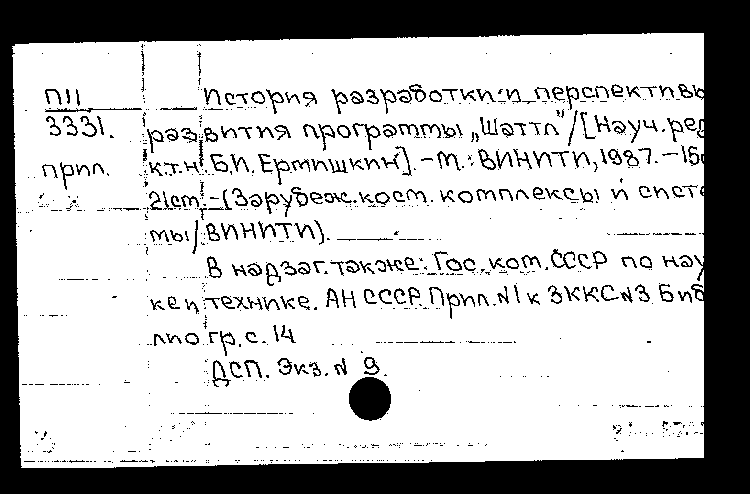 П11 История разработки и перспективы
3331. развития программы „Шаттл"/[Науч.ред.
прил. к.т.н. Б.И. Ермишкин]. -М.: ВИНИТИ, 1987. -16с
21cm. -(Зарубеж.косм. комплексы и систе-
мы/ВИНИТИ).
В надзаг.также: Гос.ком.СССР по нау-
ке и технике. АН СССР. Прил.N1 к ЗККС N3 Биб-
лиогр.с. 14
ДСП. Экз. N 9.